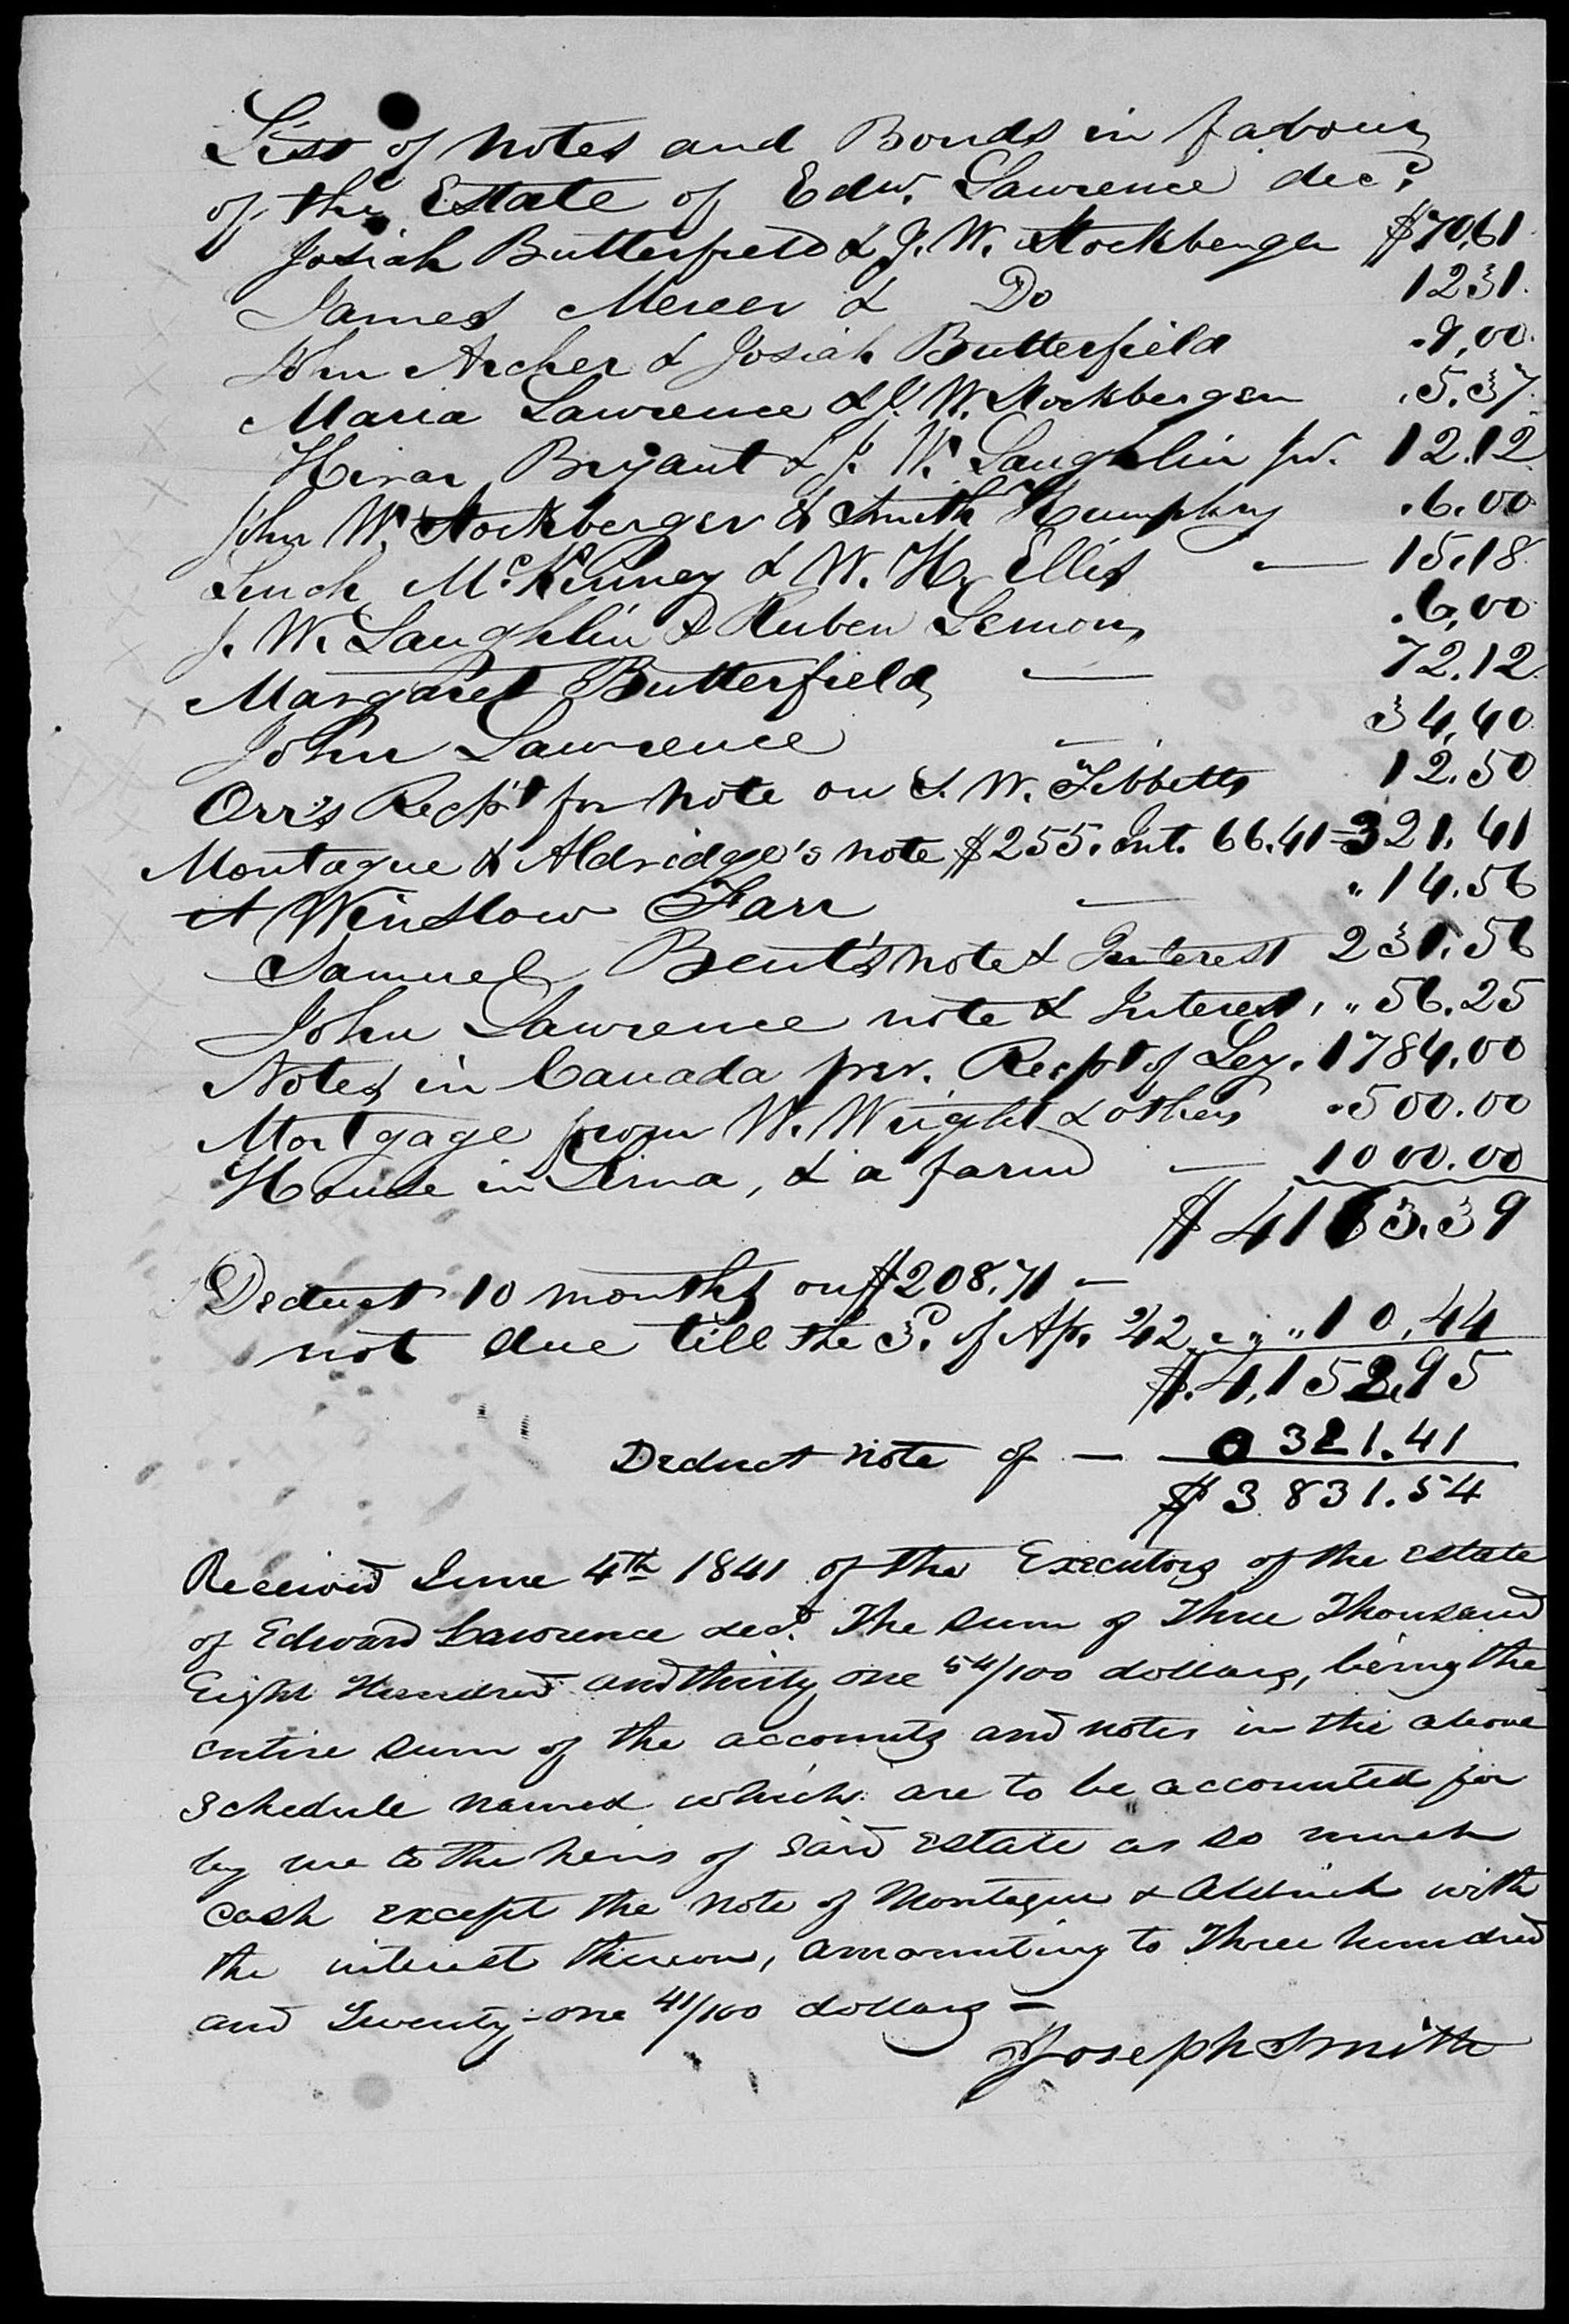 List of notes and Bonds in favour
of the Estate of Edw. Lawrence decd.
Josiah Butterfield & J. W. Stockberger $70,61
James Mercer & Do 12 31.
John Archer & Josiah Butterfield .9,00.
Maria Lawrence & J. W. Stockberger .5.37.
Hiran Bryant & J. W. Laughlin pd. 12.12
John W. Stockberger & Smith Humphry .6.00
Linch McKinney & W. H. Ellis — 15.18
J. W. Laughlin & Ruben Lemon .6,00
Margaret Butterfield — 72.12
John Lawrence — 34,40
Orr's Recpt for note on S. W. Tibbetts 12.50
Montague & Aldridge's note $255. Int. 66.41 = 321.41
A Winslow Farr — " 14.56
Samuel Bent's note & Interest 231.56
John Lawrence note & Interest, " 56.25
Notes in Canada per. Recpt of Ley. 1784,00
Mortgage from W. Wright & others .500.00
House in Lima, & a farm — 1000.00
$4163.39
Deduct 10 months on $208,71 —
not due till the 3d. of Ap. 42 " " 10,44
$.4,152,95
Deduct note of — 0 321.41
$3 831.54
Received June 4th 1841 of the Executors of the estate
of Edward Lawrence decd. The sum of Three Thousand
Eight Hundred and thirty one 54/100 dollars, being the
entire sum of the accounts and notes in the above
schedule named which are to be accounted for
by me to the heirs of said estate as so much
cash except the note of Montague & Aldrich with
the interest thereon, amounting to Three hundred
and Twenty-one 41/100 dollars —
Joseph Smith